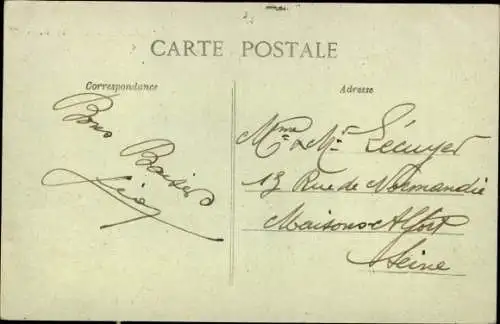 CARTE POSTALE
Correspondance
Adresse
Bons
Baisers
Mme & Mr Lécuyer
13 Rue de Normandie
Maisons-Alfort
Seine